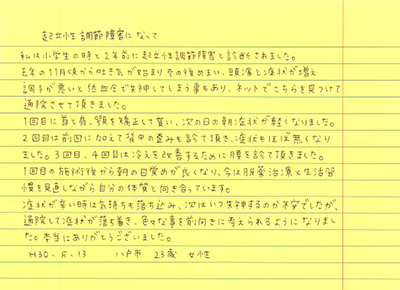 起立性調節障害になって
私は小学生の時と2年前に起立性調節障害と診断されました。
去年の11月頃から吐き気が始まりその後めまい、頭痛と症状が増え
調子が悪いと低血圧で失神してしまう事もあり、ネットでこちらを見つけて
通院させて頂きました。
1回目に首と肩、顎を矯正して貰い、次の日の朝症状が軽くなりました。
2回目は前回に加えて背中の歪みも診て頂き、症状もほぼ無くなり
ました。3回目、4回目は冷えを改善するために腰を診て頂きました。
1回目の施術後から朝の目覚めが良くなり、今は服薬治療と生活習
慣を見直しながら自分の体質と向き合っています。
症状が辛い時は気持ちも落ち込み、次はいつ失神するのか不安でしたが、
通院して症状が落ち着き、色々な事を前向きに考えられるようになりまし
た。本当にありがとうございました。
H30.5.13 八戸市 23歳 女性